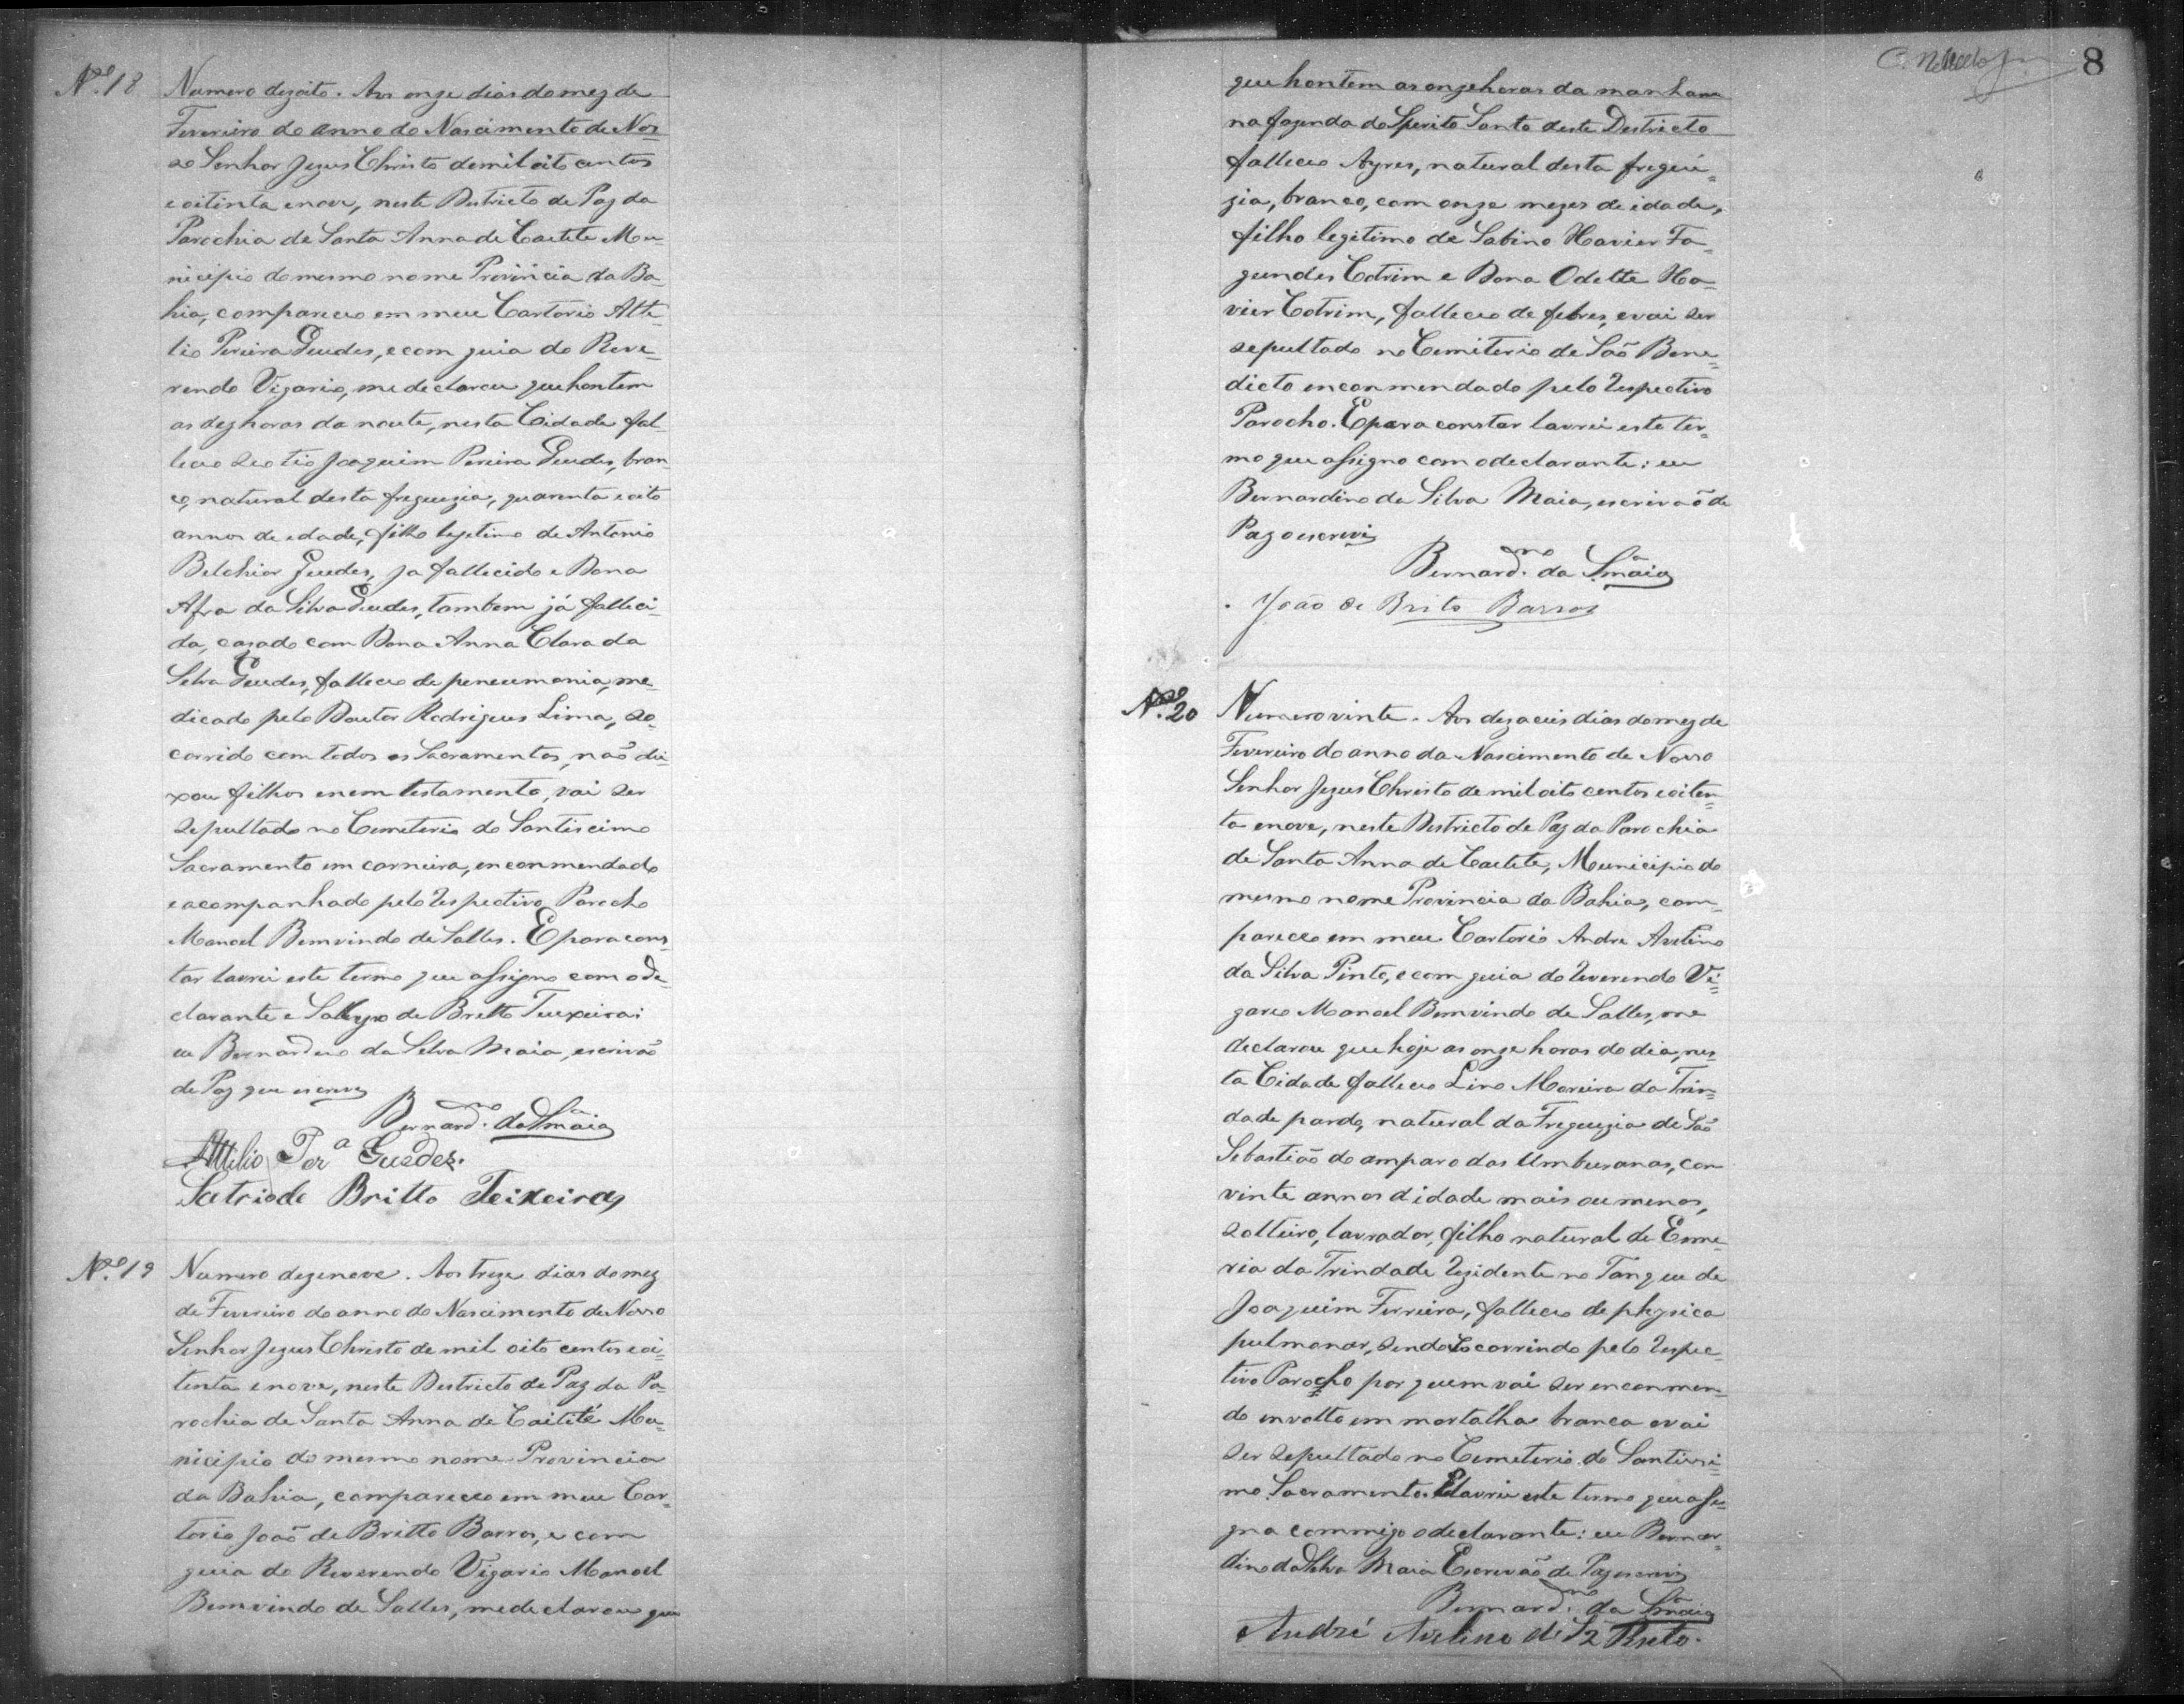 Nº 18
Numero dezoito. Aos onze dias do mez de
Fevereiro do anno do Nascimento de Nos
so Senhor Jezus Christo de mil oito centos
e oitinta e nove, neste Districto de Paz da
Parochia de Santa Anna de Caetete Mu=
nicipio do mesmo nome Provincia da Ba=
hia, compareceo em meu Cartorio Atti=
lio Pereira Guedes, e com guia do Reve=
rendo Vigario, me declarou que hontem
as dez horas da noute, nesta Cidade fal=
leceo seo tio Joaquim Pereira Guedes, bran=
co, natural desta freguezia, quarenta e oito
annos de edade, filho legitimo de Antonio
Belchior Guedes, ja fallecido e Dona
Afra da Silva Guedes, tambem já falleci=
da, cazado com Dona Anna Clara da
Silva Guedes, falleceo de peneumonia, me=
dicado pelo Doutor Rodrigues Lima, so=
corrido com todos os Sacramentos, naõ dei=
xou filhos e nem testamento, vai ser
sepultado no Cemeterio do Santiscimo
Sacramento em carneira, enconmendado
e acompanhado pelo respectivo Parocho
Manoel Bemvindo de Salles. E para cons=
tar lavrei este termo que assigno com o de=
clarante e Satyro de Britto Teixeira:
eu Bernardino da Silva Maia, escrivaõ
de Paz que escrevi
Bernard.no da S.a Maia
Attilio Per.a Guedes.
Satrio de Britto Teixeira
Nº 19
Numero dezenove. Aos treze dias do mez
de Fevereiro do anno do Nascimento de Nosso
Senhor Jezus Christo de mil oito centos e oi=
tenta e nove, neste Districto de Paz da Pa=
rochia de Santa Anna de Caitité Mu=
nicipio do mesmo nome Provincia
da Bahia, compareceo em meu Car=
torio Joaõ de Britto Barros, e com
guia do Reverendo Vigario Manoel
Bemvindo de Salles, me declarou que
8
que hontem as onze horas da manham
na fazenda do Spirito Santo deste Destricto
falleceo Ayres, natural desta freguei=
zia, branco, com onze mezes de idade,
filho legitimo de Sabino Xavier Fa=
gundes Cotrim e Dona Odette Xa=
vier Cotrim, falleceo de febres, e vai ser
sepultado no Cemiterio de Saõ Bene=
dicto enconmendado pelo respectivo
Parocho. E para constar lavrei este ter=
mo que assigno com o declarante: eu
Bernardino da Silva Maia, escrivaõ de
Paz o escrevi
Bernard.no da S.a Maia
João de Brito Barros
Nº 20
Numero vinte. Aos dezaceis dias do mez de
Fevereiro do anno da Nascimento de Nosso
Senhor Jezus Christo de mil oito centos e oiten=
ta e nove, neste Districto de Paz da Parochia
de Santa Anna de Caetete, Municipio do
mesmo nome Provincia da Bahia, com=
pareceo em meu Cartorio Andre Avelino
da Silva Pinto, e com guia do reverendo Vi=
gario Manoel Bemvindo de Salles, me
declarou que hoje as onze horas do dia, nes=
ta Cidade falleceo Lino Moreira da Trin=
dade pardo, natural da Freguezia de Saõ
Sebastiaõ do amparo das Umburanas, com
vinte annos d idade mais ou menos,
solteiro, lavrador, filho natural de Eme=
ria da Trindade rezidente no Tanque de
Joaquim Ferreira, falleceo de physica
pulmonar, sendo socorrindo pelo respec=
tivo Parocho por quem vai ser enconmen=
do involto em mortalha branca e vai
ser sepultado no Cemeterio do Santissi=
mo Sacramento. E lavrei este termo que assi=
gna commigo o declarante: eu Bernar=
dino da Silva Maia Escrevaõ de Paz escrevi
Bernard.no da S.a Maia
André Avelino da S.a Pinto.